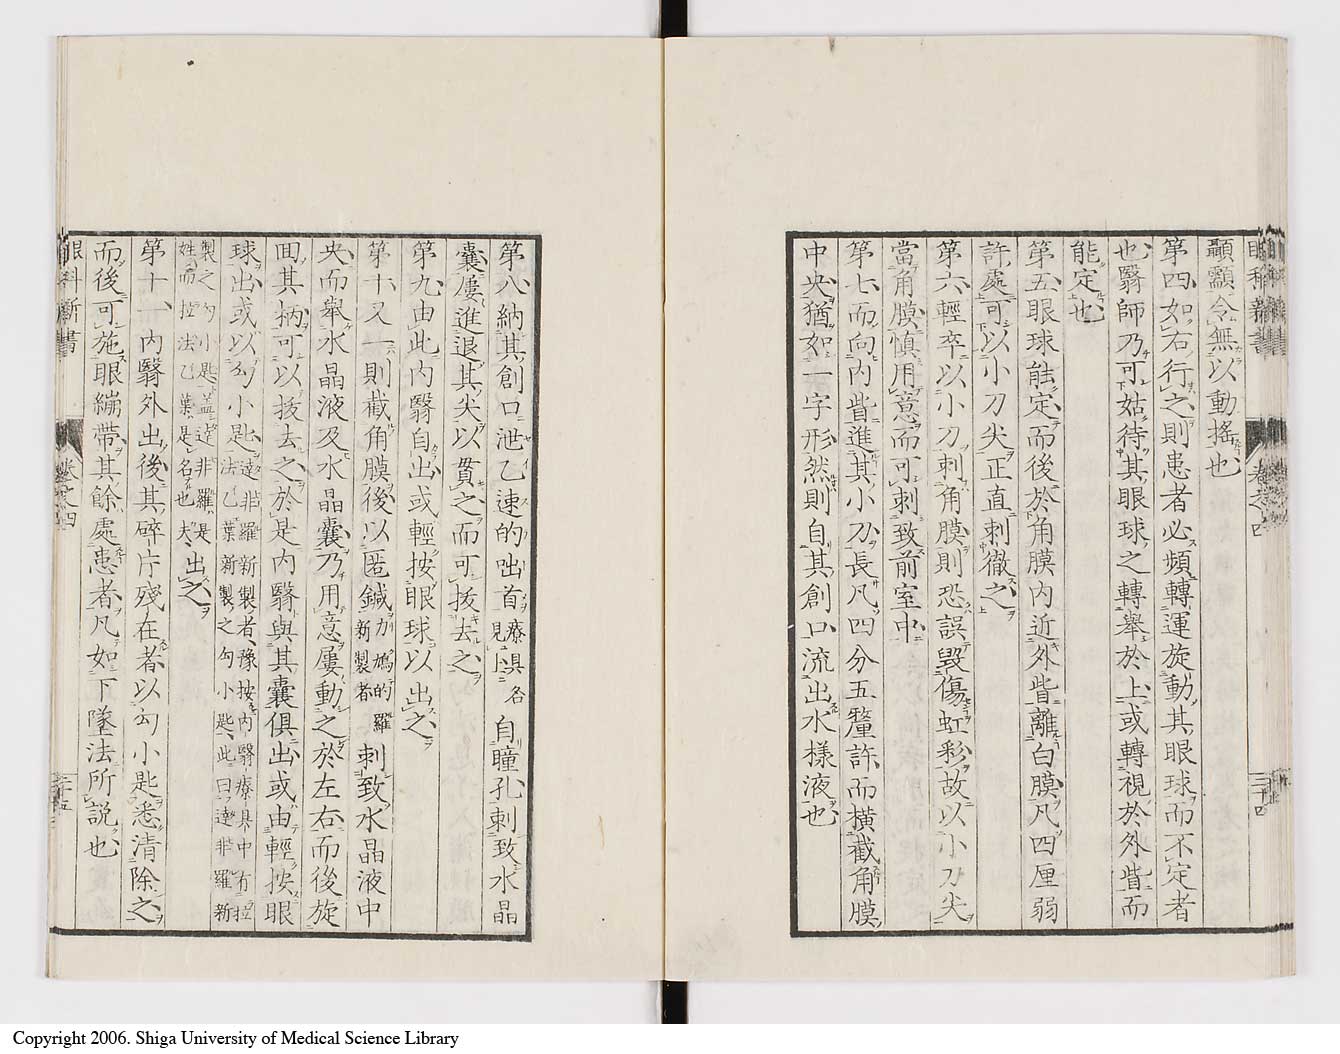 顳顬令無以動搖也
第四如右行之則患者必頻轉運旋動其眼球而不定者
也醫師乃可姑待其眼球之轉舉於上或轉視於外眥而
能定也
第五眼球能定而後於角膜內近外眥離白膜凡四厘弱
許處可以小刀尖正直刺徹之
第六輕卒以小刀刺角膜則恐誤毀傷虹彩故以小刀尖
當角膜慎用意而可刺致前室中
第七而向內眥進其小刀長凡四分五釐許而橫截角膜
中央猶如一字形然則自其創口流出水樣液也
眼科新書
卷之四
三十四
第八納其創口泄乙速的咄首療具名見上自瞳孔刺致水晶
囊屢進退其尖以貫之而可拔去之
第九由此內翳自出或輕按眼球以出之
第十又一則截角膜後以匿鍼加鳩的羅新製者刺致水晶液中
央而舉水晶液及水晶囊乃用意屢動之於左右而後旋
回其柄可以拔去之於是內翳與其囊俱出或由輕按眼
球出或以勾小匙達非羅新製者豫按內翳療具中有拉法乙葉新製之勾小匙此曰達非羅新
製之勾小匙蓋達非羅是姓而拉法乙葉是名也夫出之
第十一內翳外出後其碎片殘在者以勾小匙悉清除之
而後可施眼繃帶其餘處患者凡如下墜法所說也
眼科新書
卷之四
三十五
Copyright 2006. Shiga University of Medical Science Library